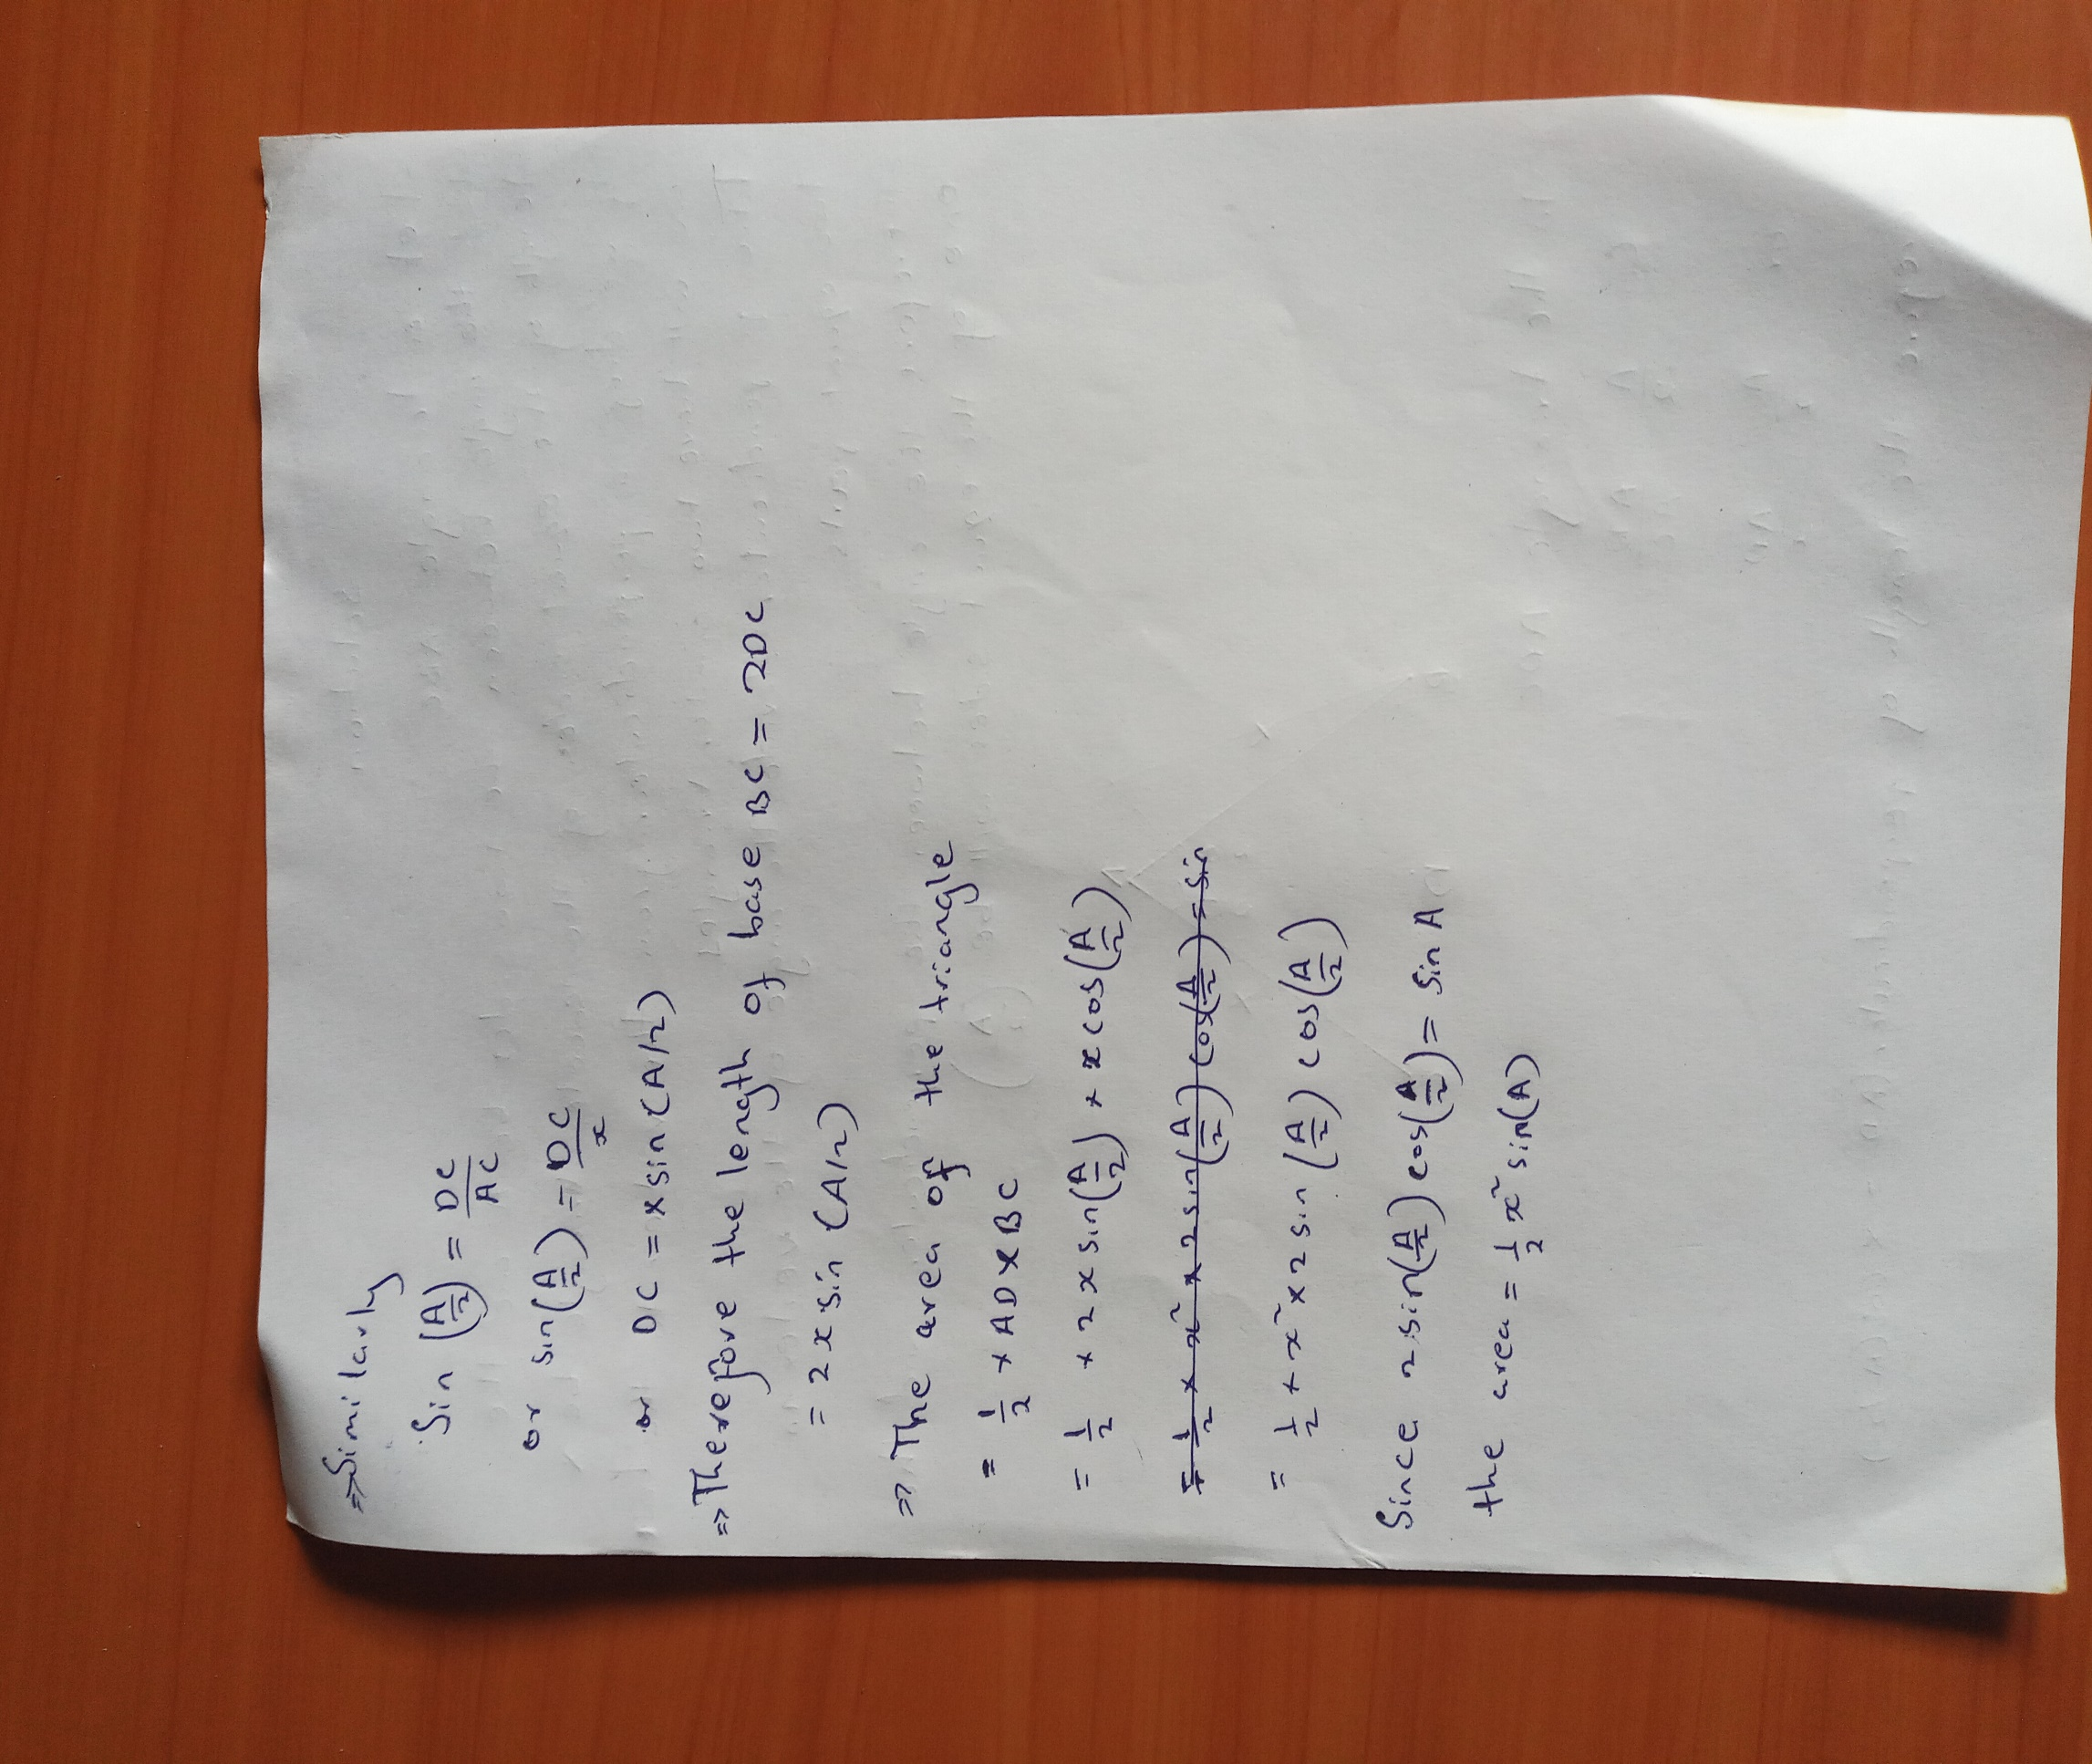 ⇒ Similarly
Sin (A/2) = DC/AC
or sin(A/2) = DC/x
or DC = x sin (A/2)
⇒ Therefore the length of base BC = 2DC
= 2x sin (A/2)
⇒ The area of the triangle
= 1/2 × AD × BC
= 1/2 × 2x sin(A/2) × x cos(A/2)
= 1/2 × x² × 2 sin(A/2) cos(A/2) = sin
= 1/2 × x² × 2 sin (A/2) cos(A/2)
Since 2 sin(A/2) cos(A/2) = Sin A
the area = 1/2 x² sin(A)